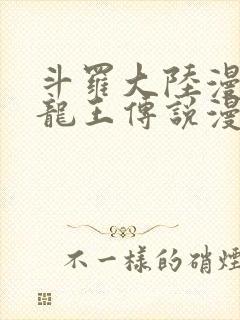 斗羅大陸漫
龍王傳說漫
不一樣的硝煙